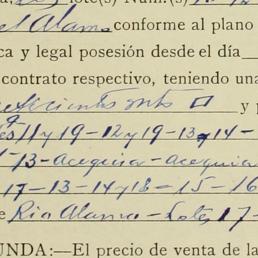 lote(s) Núm.(s)
el Alamo conforme al plano
ca y legal posesión desde el día
contrato respectivo, teniendo una
y p
11 y 19-12 y 19-13 y 14-
-13-acequia-acequia
17-13-14 y 18-15-16
e Rio Alamo-Lotes 17-
UNDA:—El precio de venta de la